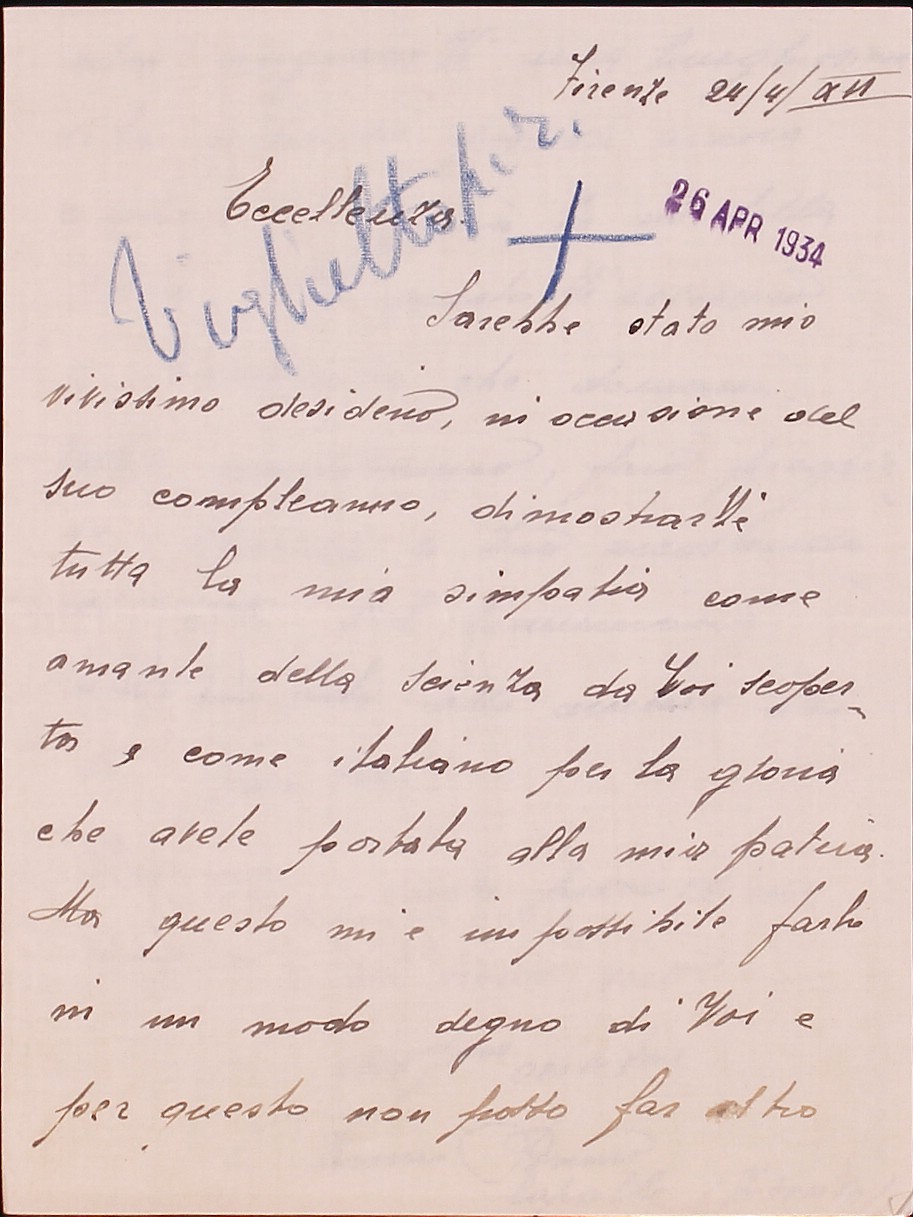 Firenze 24/4/XII
Eccellenza.
Viglietto
26 APR 1934
Sarebbe stato mio
vivissimo desiderio, in occasione del
suo compleanno, dimostrarLi
tutta la mia simpatia come
amante della scienza da Voi scoper-
ta e come italiano per la gloria
che avete portata alla mia patria.
Ma questo mi e impossibile farlo
in un modo degno di Voi e
per questo non posso far altro